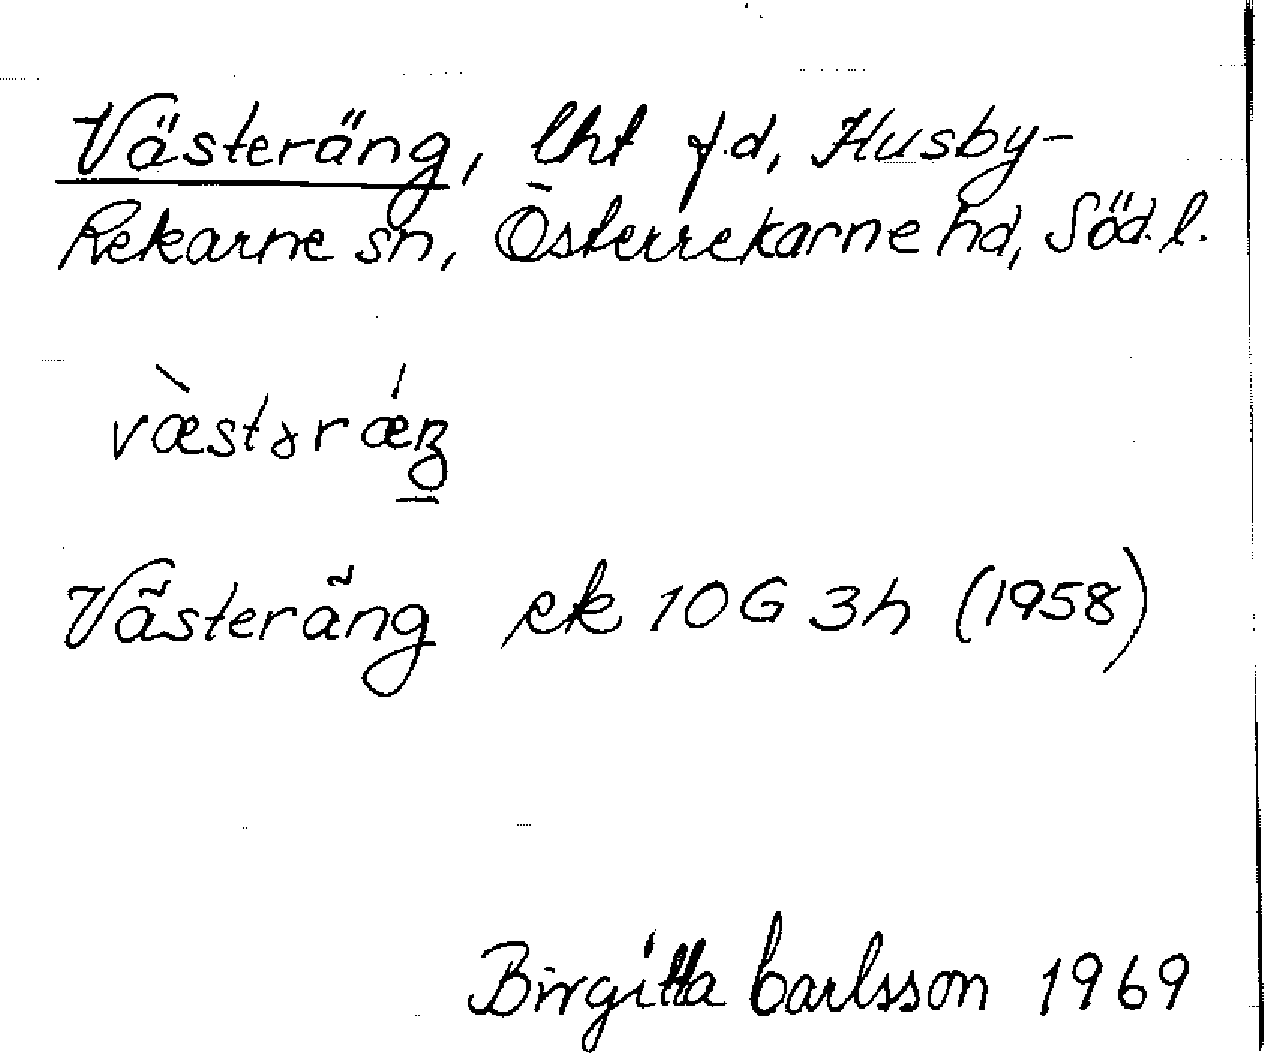 Västeräng, lht f.d, Husby-
Rekarne sn, Österrekarne hd, Söd.l.
væ̀stərǽŋ
Västeräng ek 10G 3h (1958)
Birgitta Carlsson 1969